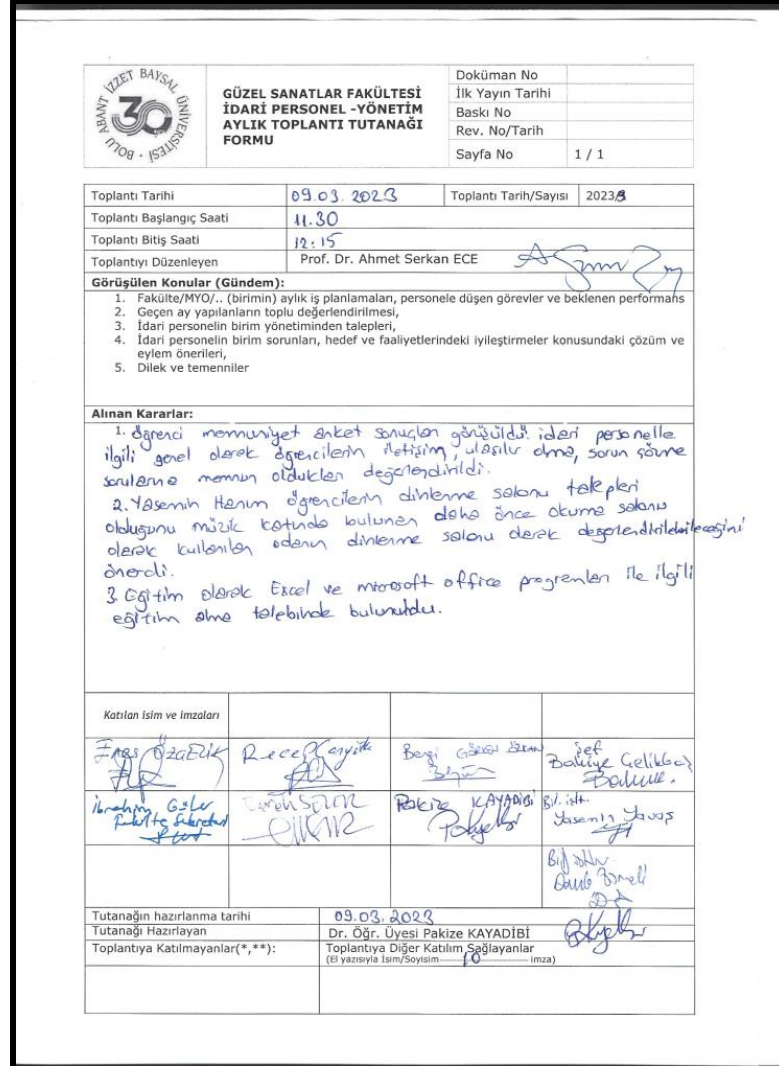 BOLU ABANT İZZET BAYSAL ÜNİVERSİTESİ
30
GÜZEL SANATLAR FAKÜLTESİ
İDARİ PERSONEL -YÖNETİM
AYLIK TOPLANTI TUTANAĞI
FORMU
Doküman No
İlk Yayın Tarihi
Baskı No
Rev. No/Tarih
Sayfa No 1 / 1
Toplantı Tarihi 09.03.2023 Toplantı Tarih/Sayısı 2023/3
Toplantı Başlangıç Saati 11.30
Toplantı Bitiş Saati 12:15
Toplantıyı Düzenleyen Prof. Dr. Ahmet Serkan ECE
Görüşülen Konular (Gündem):
1. Fakülte/MYO/.. (birimin) aylık iş planlamaları, personele düşen görevler ve beklenen performans
2. Geçen ay yapılanların toplu değerlendirilmesi,
3. İdari personelin birim yönetiminden talepleri,
4. İdari personelin birim sorunları, hedef ve faaliyetlerindeki iyileştirmeler konusundaki çözüm ve
eylem önerileri,
5. Dilek ve temenniler
Alınan Kararlar:
1. Öğrenci memnuniyet anket sonuçları görüşüldü. idari personelle
ilgili genel olarak öğrencilerin iletişim, ulaşılır olma, sorun çözme
sorularına memnun oldukları değerlendirildi.
2. Yasemin Hanım öğrencilerin dinlenme salonu talepleri
olduğunu müzik katında bulunan daha önce okuma salonu
olarak kullanılan odanın dinlenme salonu olarak değerlendirilebileceğini
önerdi.
3. Eğitim olarak Excel ve microsoft office programları ile ilgili
eğitim alma talebinde bulunuldu.
Katılan isim ve imzaları
Enes ÖZÇELİK Recep Bengi Şef
Bahiye
İbrahim Güler Pakize KAYADİBİ Bil. işlt.
Fakülte Sekreteri Yasemin Yavaş
Tutanağın hazırlanma tarihi 09.03.2023
Tutanağı Hazırlayan Dr. Öğr. Üyesi Pakize KAYADİBİ
Toplantıya Katılmayanlar(*,**): Toplantıya Diğer Katılım Sağlayanlar
(El yazısıyla İsim/Soyisim 10 imza)